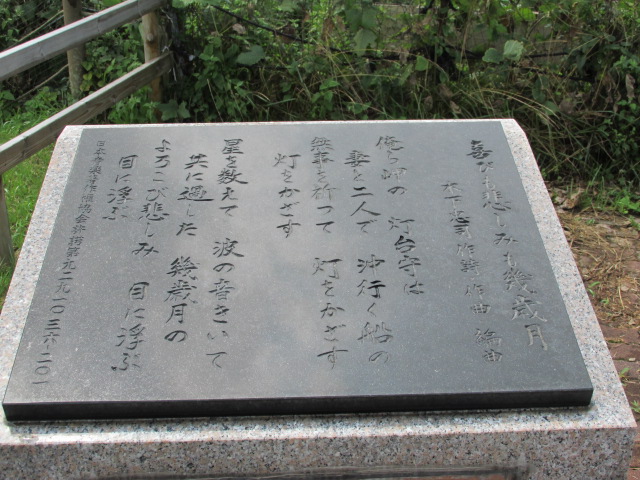 喜びも悲しみも幾歳月
木下忠司 作詩 作曲 編曲
俺ら岬の 灯台守は
妻と二人で 沖行く船の
無事を祈って 灯をかざす
灯をかざす
星を数えて 波の音きいて
共に過した 幾歳月の
よろこび悲しみ 目に浮ぶ
目に浮ぶ
日本音楽著作権協会許諾第九二九一〇三六-二〇一